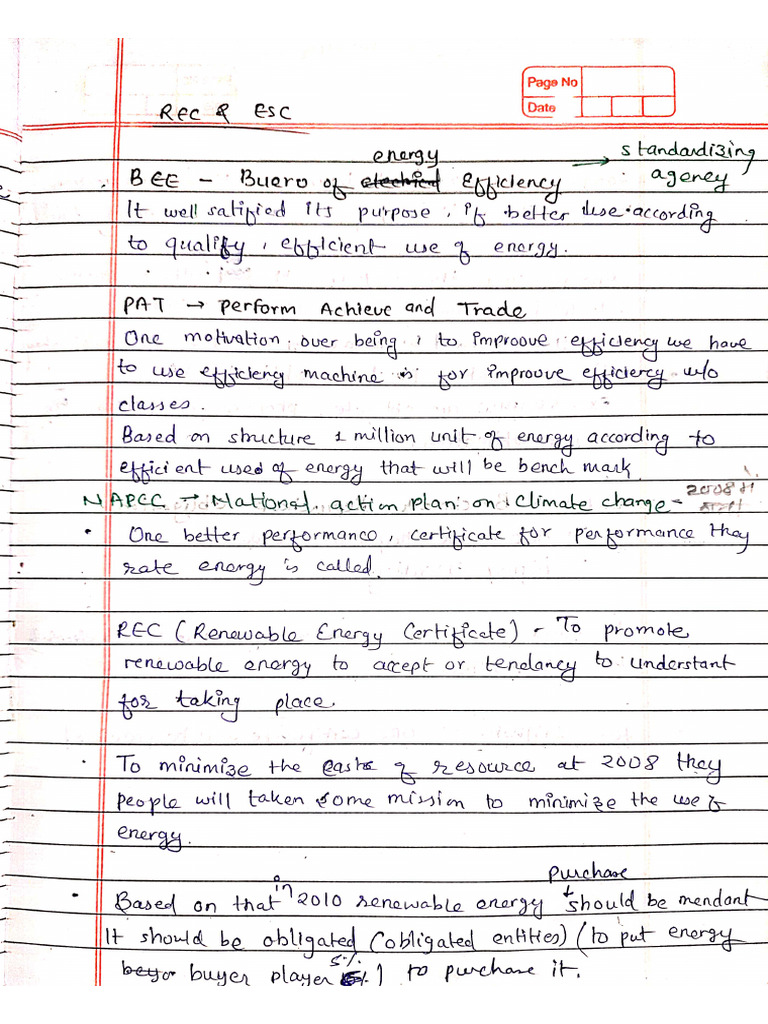 Page No
Date
REC & ESC
BEE - Buero of energy Efficiency → standardizing agency
It well satified its purpose, if better use according
to qualify, efficient use of energy.
PAT → Perform Achieve and Trade
One motivation over being, to improove efficiency we have
to use efficiency machine is for improove efficiency w/o
classes.
Based on structure 1 million unit of energy according to
efficient used of energy that will be bench mark
NAPCC → National action plan on climate change - 2008
• One better performance, certificate for performance they
rate energy is called.
REC (Renewable Energy Certificate) - To promote
renewable energy to accept or tendancy to understant
for taking place.
• To minimize the of resource at 2008 they
people will taken some mission to minimize the use of
energy.
• Based on that in 2010 renewable energy purchase should be mendant
It should be obligated (obligated entities) (to put energy
buyer player 5%) to purchase it.